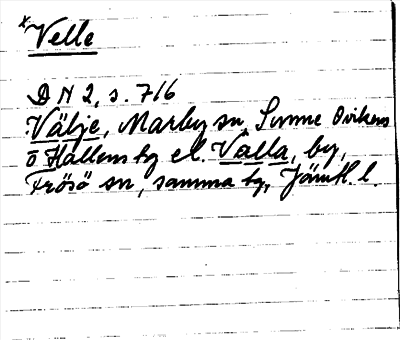 x Velle
D N 2, s. 716
Välje, Marby sn, Sunne Ovikens
o Hallens tg el. Valla, by,
Frösö sn, samma tg, Jämtl. l.